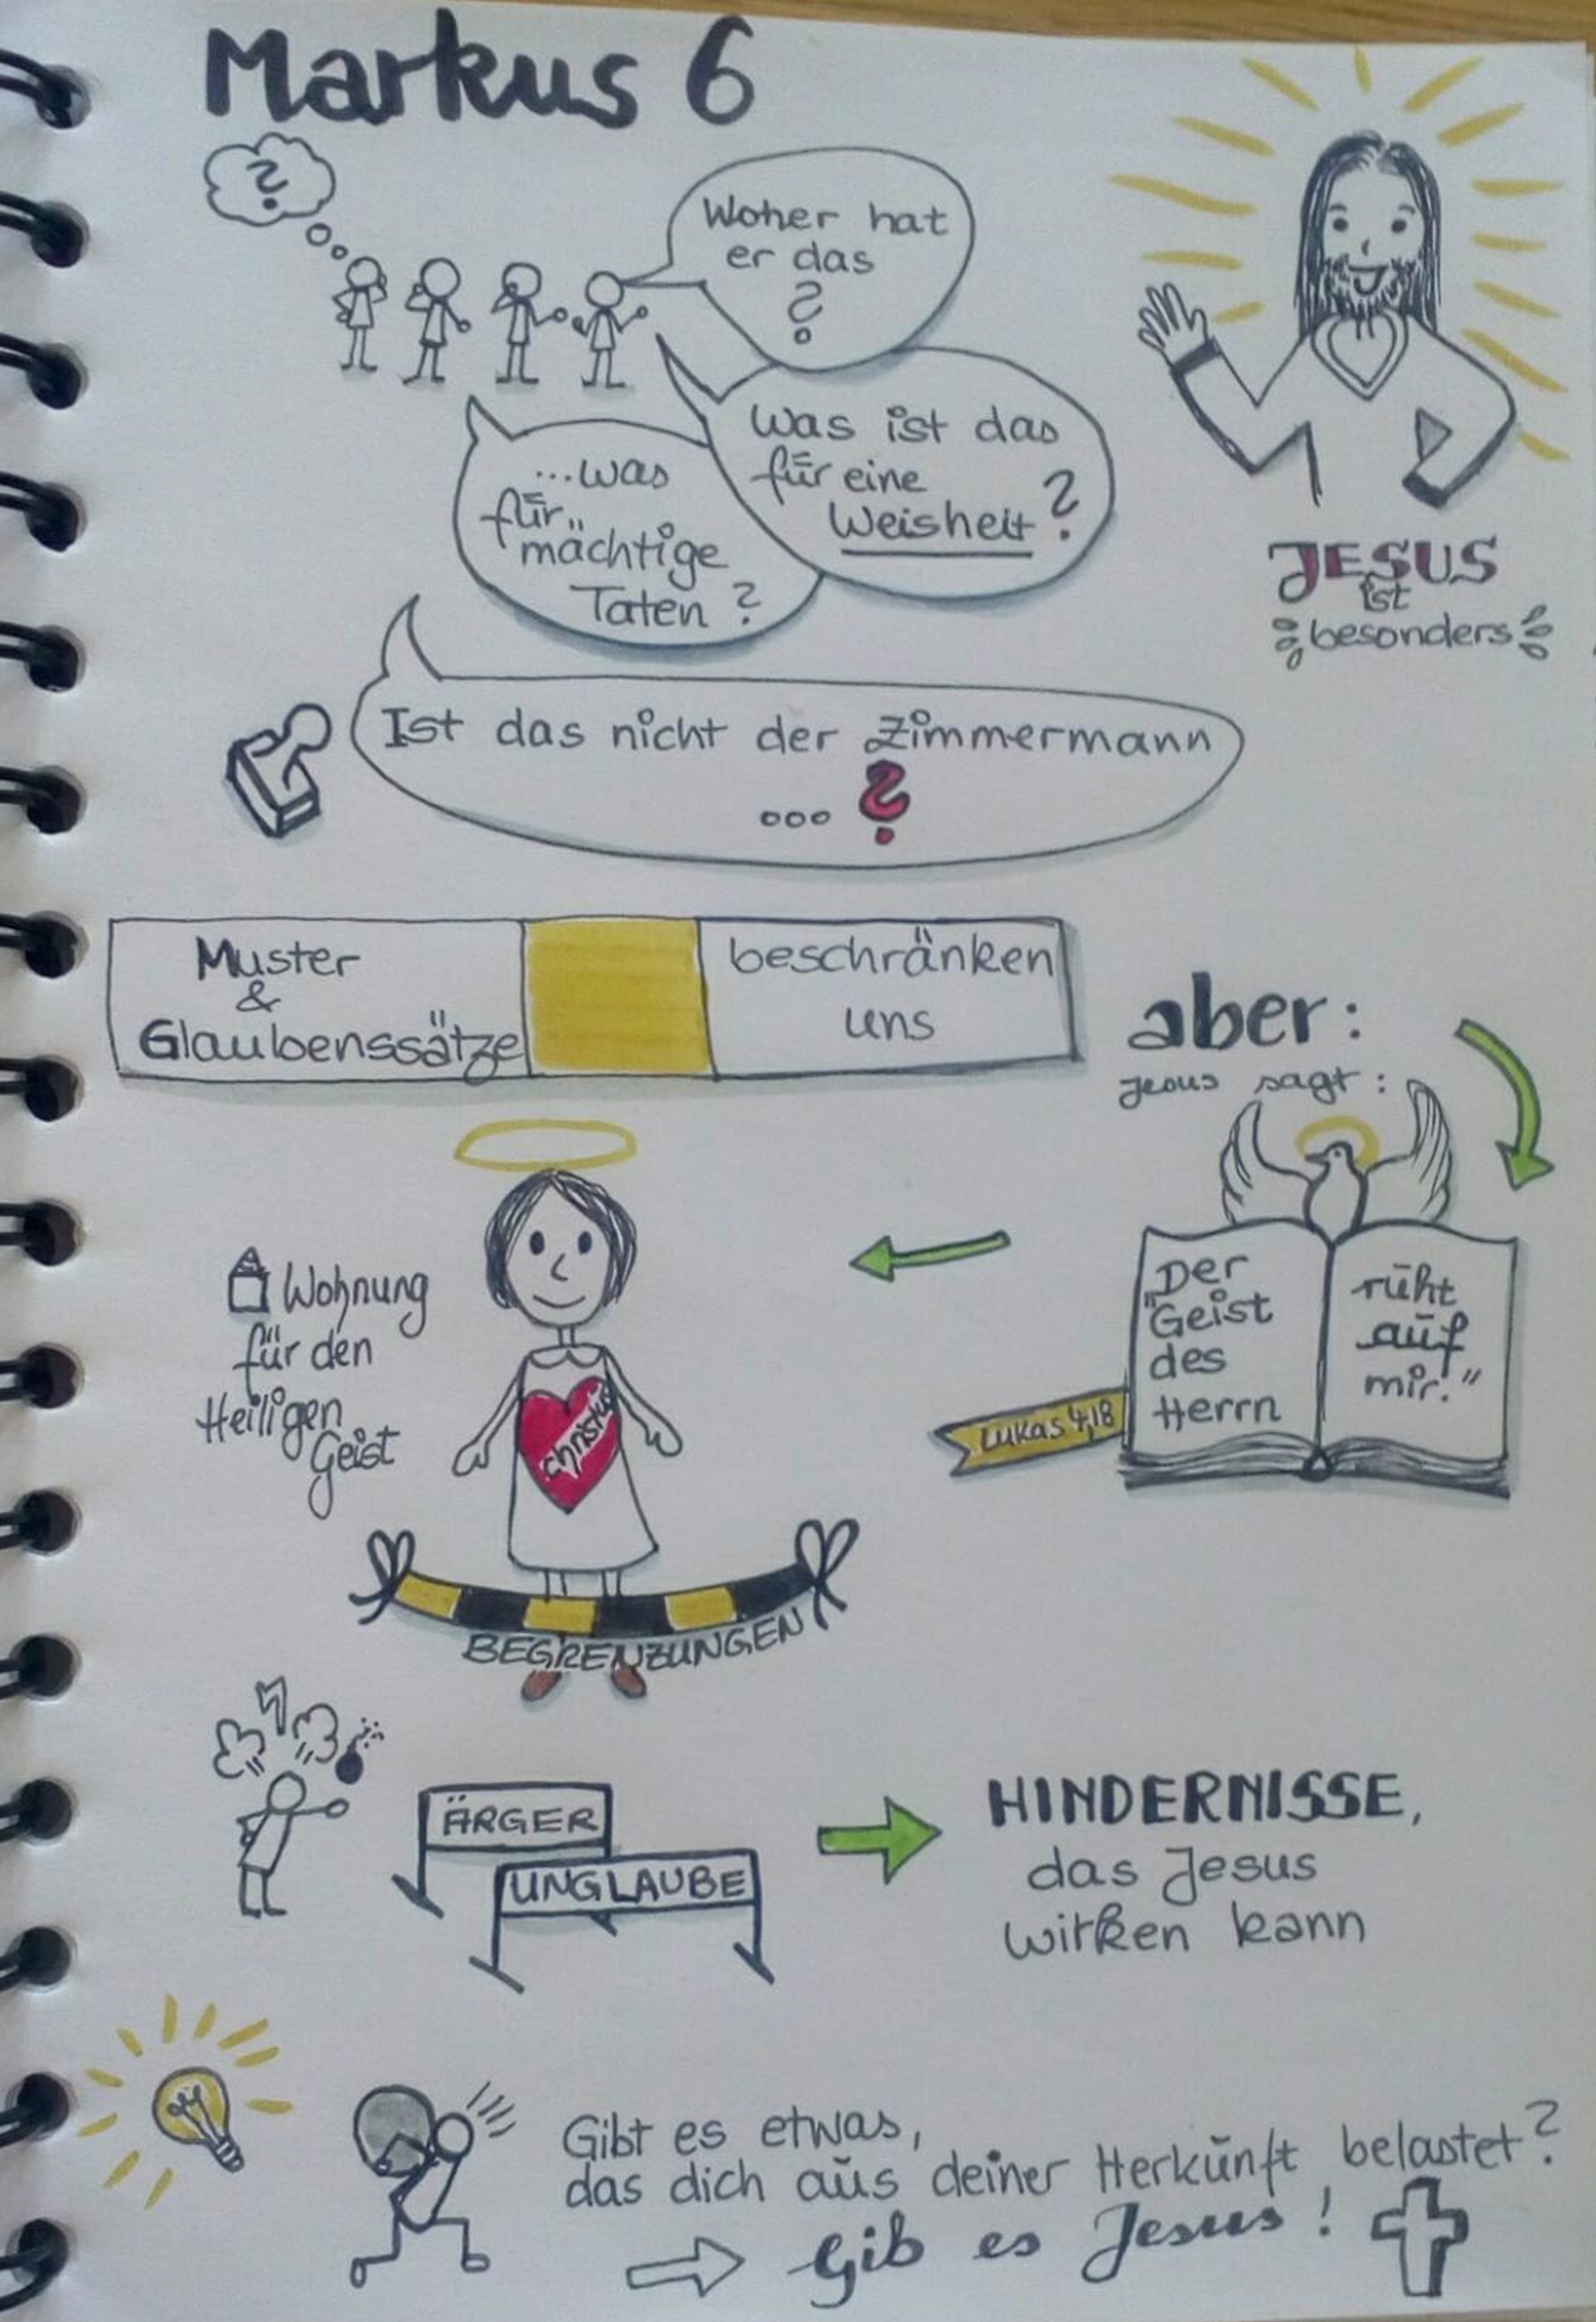 Markus 6
?
Woher hat
er das
?
Was ist das
für eine
Weisheit?
...was
für
mächtige
Taten?
JESUS
ist
besonders
Ist das nicht der Zimmermann
...?
Muster
&
Glaubenssätze
beschränken
uns
aber:
Jesus sagt:
"Der
Geist
des
Herrn
ruht
auf
mir."
Lukas 4,18
Wohnung
für den
Heiligen
Geist
Christus
BEGRENZUNGEN
ÄRGER
UNGLAUBE
HINDERNISSE,
das Jesus
wirken kann
Gibt es etwas,
das dich aus deiner Herkunft belastet?
Gib es Jesus!